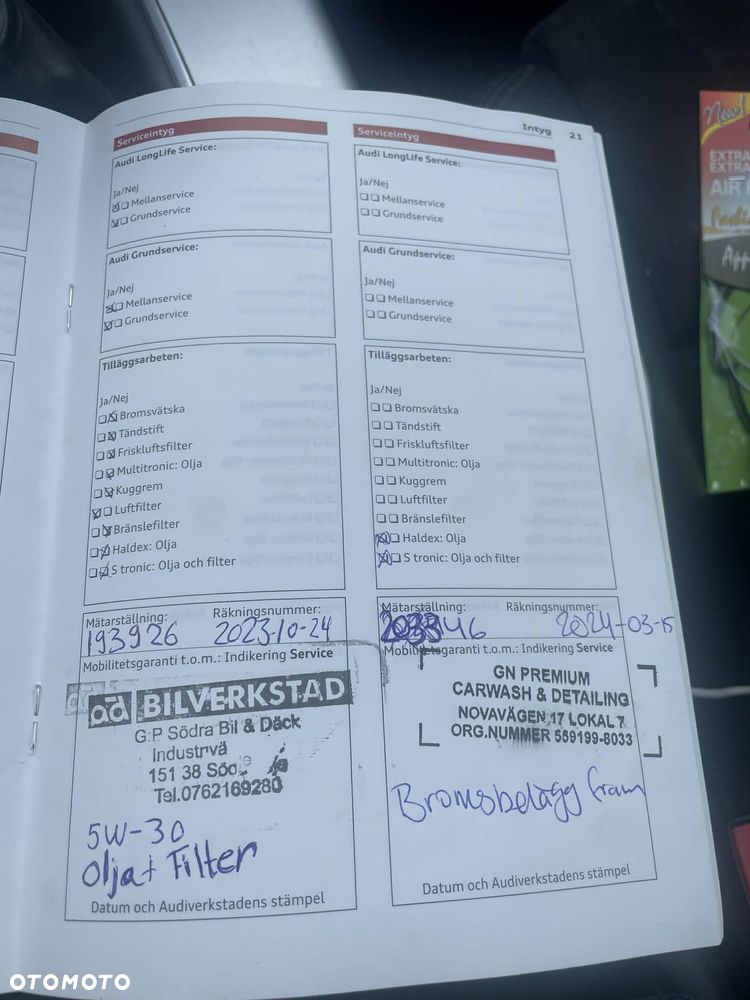 Intyg 21
Serviceintyg
Audi LongLife Service:
Ja/Nej
Mellanservice
Grundservice
Audi Grundservice:
Ja/Nej
Mellanservice
Grundservice
Tilläggsarbeten:
Ja/Nej
Bromsvätska
Tändstift
Friskluftsfilter
Multitronic: Olja
Kuggrem
Luftfilter
Bränslefilter
Haldex: Olja
S tronic: Olja och filter
Mätarställning: Räkningsnummer:
193926 2023-10-24
Mobilitetsgaranti t.o.m.: Indikering Service
ad BILVERKSTAD
G:P Södra Bil & Däck
Industrivä
151 38 Söd
Tel.0762169280
5W-30
Olja + Filter
Datum och Audiverkstadens stämpel
Serviceintyg
Audi LongLife Service:
Ja/Nej
Mellanservice
Grundservice
Audi Grundservice:
Ja/Nej
Mellanservice
Grundservice
Tilläggsarbeten:
Ja/Nej
Bromsvätska
Tändstift
Friskluftsfilter
Multitronic: Olja
Kuggrem
Luftfilter
Bränslefilter
Haldex: Olja
S tronic: Olja och filter
Mätarställning: Räkningsnummer:
2024-03-15
Mobilitetsgaranti t.o.m.: Indikering Service
GN PREMIUM
CARWASH & DETAILING
NOVAVÄGEN 17 LOKAL 7
ORG.NUMMER 559199-8033
Bromsbelägg fram
Datum och Audiverkstadens stämpel
New!
EXTRA
EXTRA
AIR
OTOMOTO